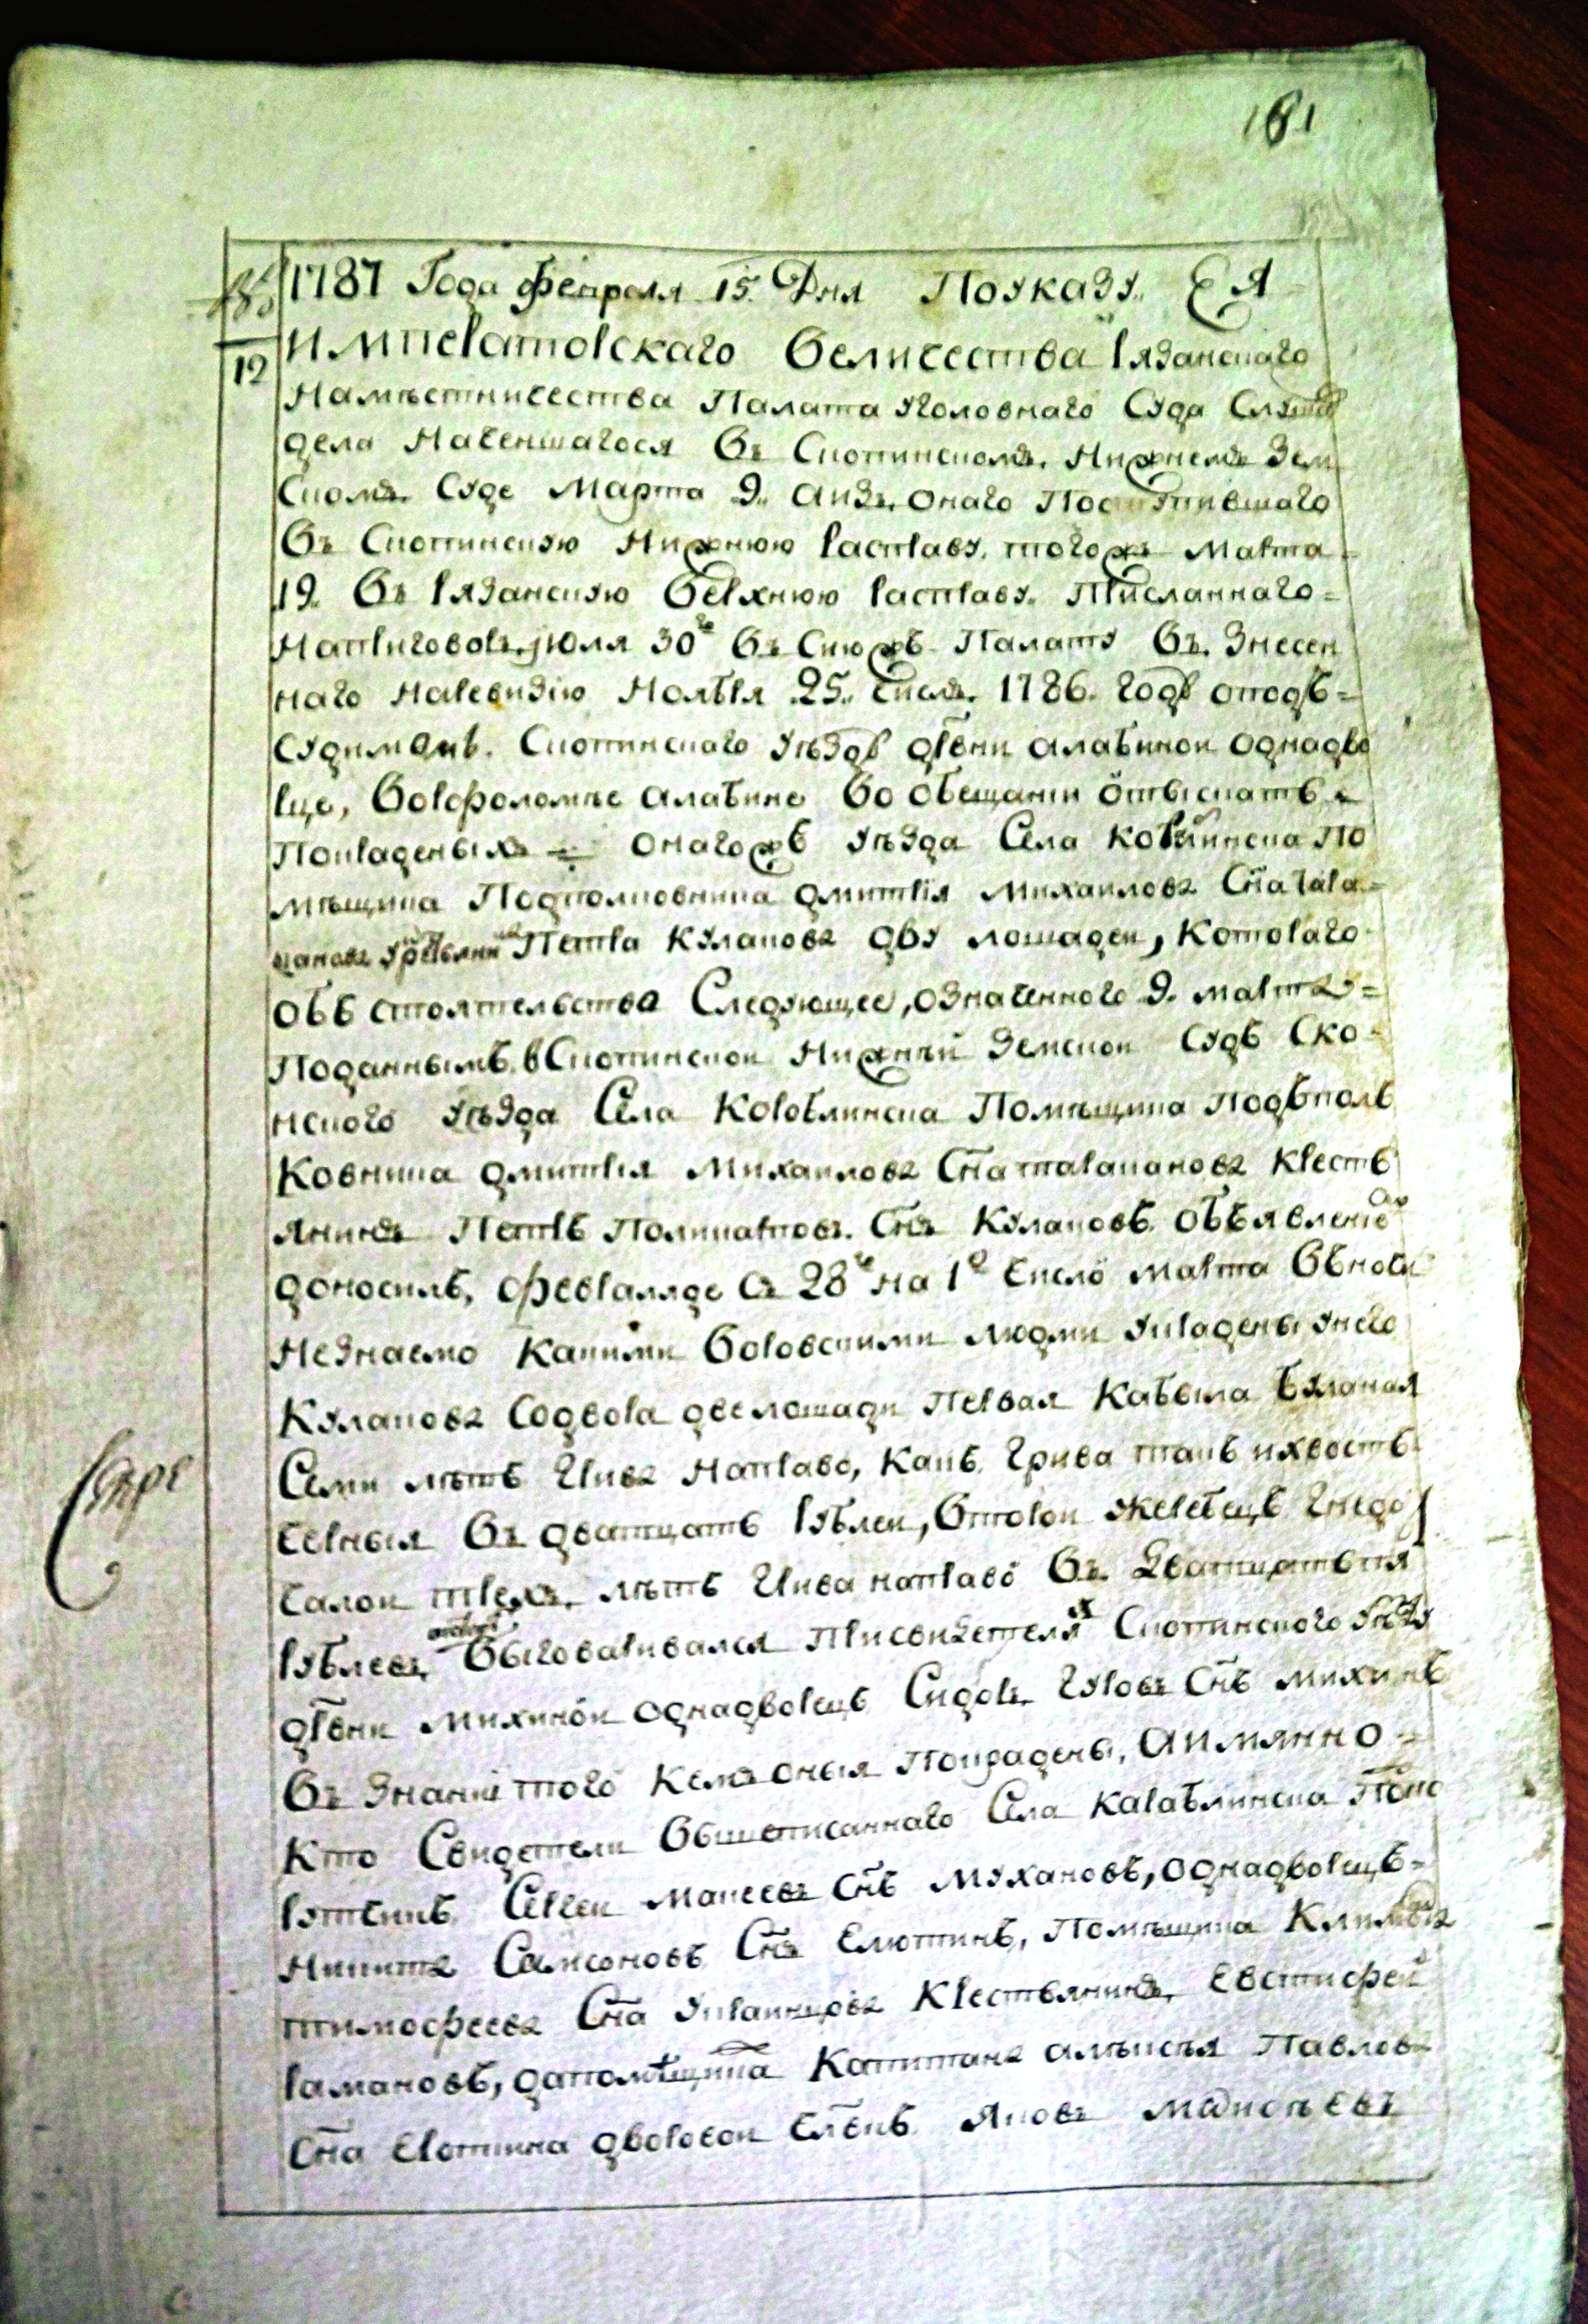 181
1787 Года февраля 15. Дня По указу Ея
императорскаго величества рязанскаго
намѣстничества Палата уголовнаго Суда Слушав
дела начевшагося въ Скопинскомъ нижнемъ Зем
Скомъ Суде Марта 9. аизъ онаго Поступившаго
въ Скопинскую нижнюю расправу того жъ марта
19. въ рязанскую верхнюю расправу Присланнаго
наприговоръ июля 30го въ Сию жъ Палату въ Знесен
наго наревизию ноября 25. числа 1786. годѣ отодѣ
Судимомъ Скопинскаго уѣзда дрвни алабиной однадво
рце, ворфоломѣе алабине во обещании отыскать
Покраденыхъ онаго жъ уѣзда Села Коблинска По
мѣщика Подполковника дмитрія михаилова Сна тара
канова Крестьянина Петра Куланова дву лошадей, Которого
обстоятельства Следующее, означенного 9. марта
Поданнымъ в Скопинской нижній Земской Судъ Ско
нского уѣзда Села Кораблинска Помѣщика подъполъ
Ковника дмитрія михаилова Сна тараканова Кресть
янинъ Петръ Поликарповъ Снъ Кулановъ Объявление
доносилъ, февраля де съ 28го на 1е число марта въ ночи
незнаемо Какими воровскими людми украдены у него
Куланова Содвора две лошади Первая Кабыла буланая
Семи лѣтъ Грива направо, какъ грива такъ и хвостъ
черныя въ дватцать рублей, второй жеребецъ гнедо
чалой трехъ лѣтъ Грива направо въ дватцать пя
рублевъ выговаривался Присвидетеляхъ Скопинского уѣзду
дрвни михиной однадворецъ Сидоръ Гуровъ Снъ михинъ
въ Знании того Кемъ оныя Покрадены, а имянно
Кто Свидетели вышеписаннаго Села Караблинска
рутчикъ Сергей макеевъ Снъ мухановъ, однадворецъ
никита Самсоновъ Снъ Елютинъ, Помѣщика Климова
тимофеева Сна украинцова Крестьянинъ Евстифей
рамановъ, да помѣщика Капитана алѣксѣя Павлов
Сна Ерапкина дворовой члвкъ Яковъ